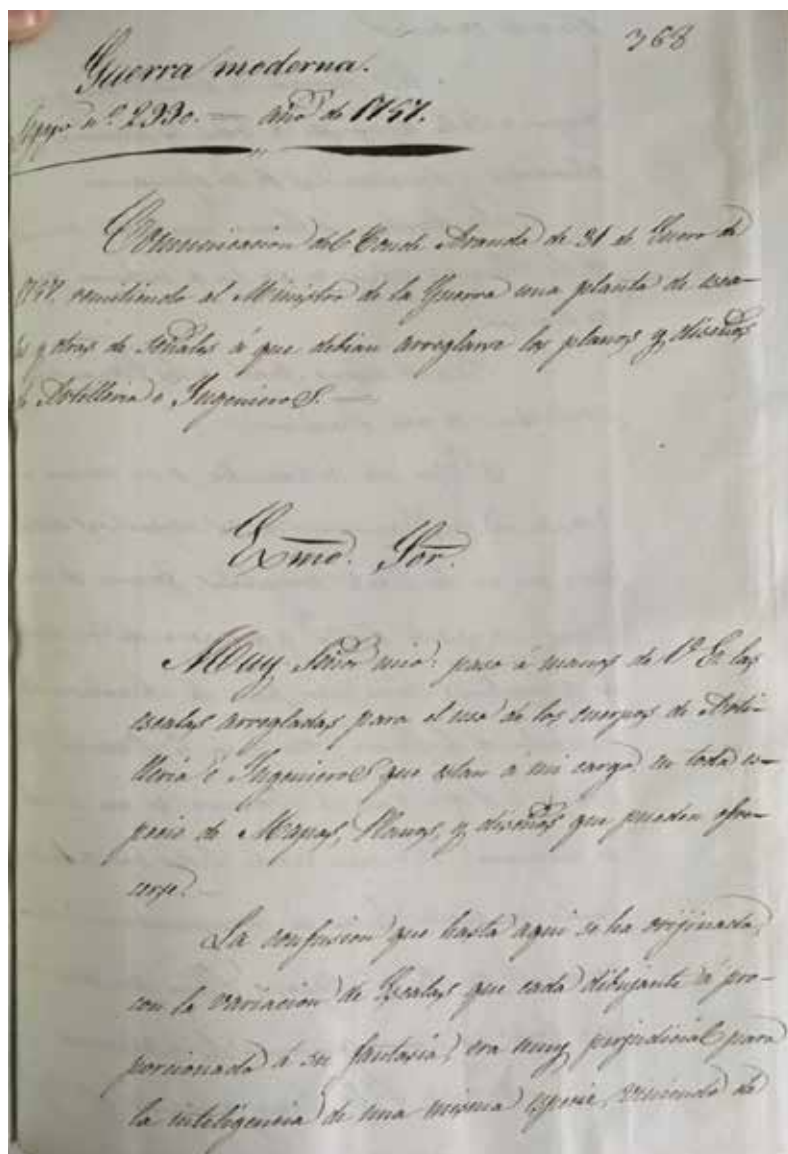 368
Guerra moderna.
Legajo nº 2930. — año de 1757.
Comunicacion del Conde Aranda de 31 de Enero de
1757 remitiendo al Ministro de la Guerra una planta de esca-
las y otras de señales á que debian arreglarse los planos y diseños
de Artilleria e Ingenieros.—
Exmo. Sor.
Muy Señor mio: paso á manos de Vª Ex las
escalas arregladas para el uso de los cuerpos de Arti-
lleria é Ingenieros que estan á mi cargo en toda es-
pecie de Mapas, Planos, y diseños que pueden ofre-
cerse.
La confusion que hasta aqui se ha orijinado,
con la variacion de Escalas que cada dibujante á pro-
porcionado á su fantasia, era muy perjudicial para
la inteligencia de una misma especie, viniendo de